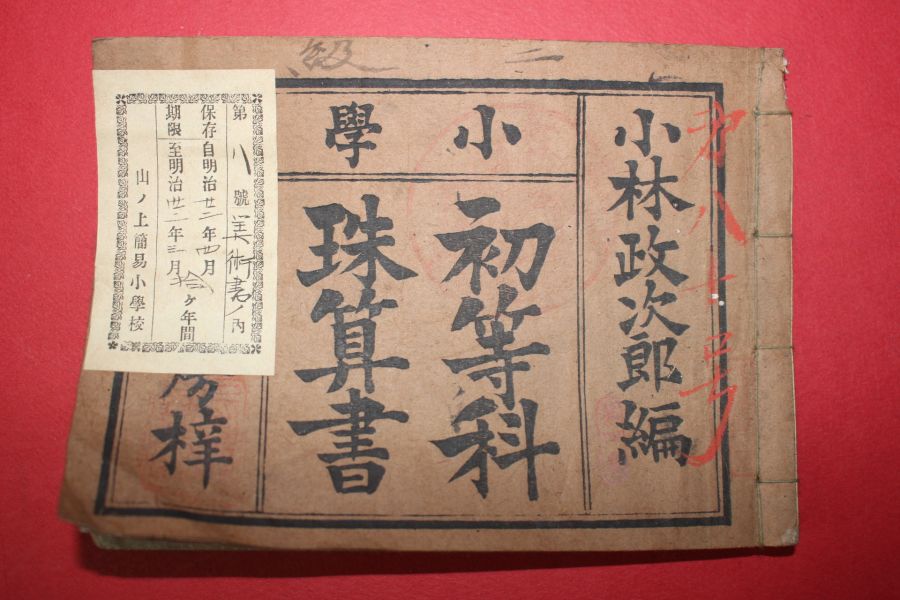 二
級
小林政次郎編
小學
初等科
珠算書
梓
第八號美術書ノ內
保存自明治廿二年四月
期限至明治卅二年三月
ヶ年間
山ノ上簡易小學校